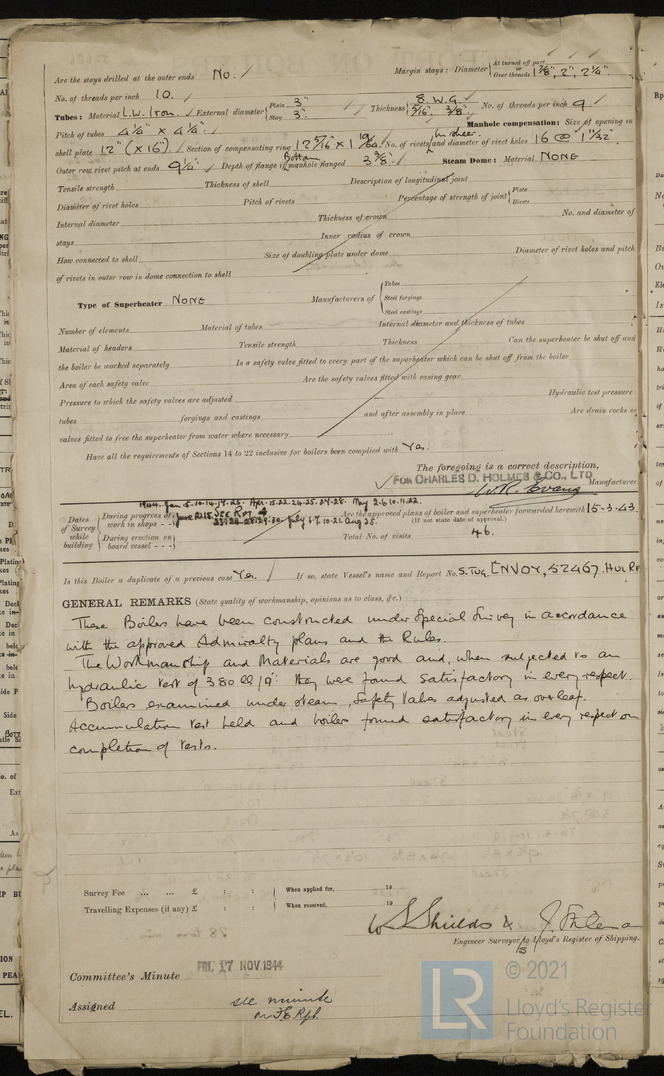 Are the stays drilled at the outer ends No. Margin stays: Diameter { At turned off part, or Over threads 1 7/8", 2", 2 1/4".
No. of threads per inch 10.
Tubes: Material L.W. Iron. External diameter { Plain 3" Stay 3" Thickness { 8. W.G. 5/16" 3/8" No. of threads per inch 9
Pitch of tubes 4 1/4" x 4 1/4" Manhole compensation: Size of opening in
shell plate 12" (x 16") Section of compensating ring No. of rivets and diameter of rivet holes 16 @ 1 1/32"
Outer row rivet pitch at ends 9 1/4" Depth of flange if manhole flanged Bottom Steam Dome: Material NONE
Tensile strength Thickness of shell Description of longitudinal joint
Diameter of rivet holes Pitch of rivets Percentage of strength of joint { Plate Rivets
Internal diameter Thickness of crown No. and diameter of
stays Inner radius of crown
How connected to shell Size of doubling plate under dome Diameter of rivet holes and pitch
of rivets in outer row in dome connection to shell
Type of Superheater NONE Manufacturers of { Tubes Steel forgings Steel castings
Number of elements Material of tubes Internal diameter and thickness of tubes
Material of headers Tensile strength Thickness Can the superheater be shut off and
the boiler be worked separately Is a safety valve fitted to every part of the superheater which can be shut off from the boiler
Area of each safety valve Are the safety valves fitted with easing gear
Pressure to which the safety valves are adjusted Hydraulic test pressure:
tubes forgings and castings and after assembly in place Are drain cocks or
valves fitted to free the superheater from water where necessary
Have all the requirements of Sections 14 to 22 inclusive for boilers been complied with Yes.
The foregoing is a correct description,
FOR CHARLES D. HOLMES & CO., LTD Manufacturer.
W.R. Evans
Dates of Survey while building { During progress of work in shops - - Are the approved plans of boiler and superheater forwarded herewith 15-3-43.
(If not state date of approval.)
During erection on board vessel - - - Total No. of visits 46.
Is this Boiler a duplicate of a previous case Yes. If so, state Vessel's name and Report No. S.Tug. ENVOY, 52467. Hul Rp
GENERAL REMARKS (State quality of workmanship, opinions as to class, &c.)
These Boilers have been constructed under Special Survey in accordance
with the approved Admiralty plans and the Rules.
The Workmanship and Materials are good and, when subjected to an
hydraulic test of 380 lb/□" they were found satisfactory in every respect.
Boilers examined under steam, Safety Valves adjusted as overleaf.
Accumulation test held and boiler found satisfactory in every respect on
completion of tests.
Survey Fee ... ... £ : : { When applied for, 19
Travelling Expenses (if any) £ : : { When received, 19
W S Shields &
Engineer Surveyor to Lloyd's Register of Shipping.
FRI. 17 NOV. 1944
Committee's Minute
Assigned see minute
on F.E. Rpt.
LR © 2021
Lloyd's Register
Foundation